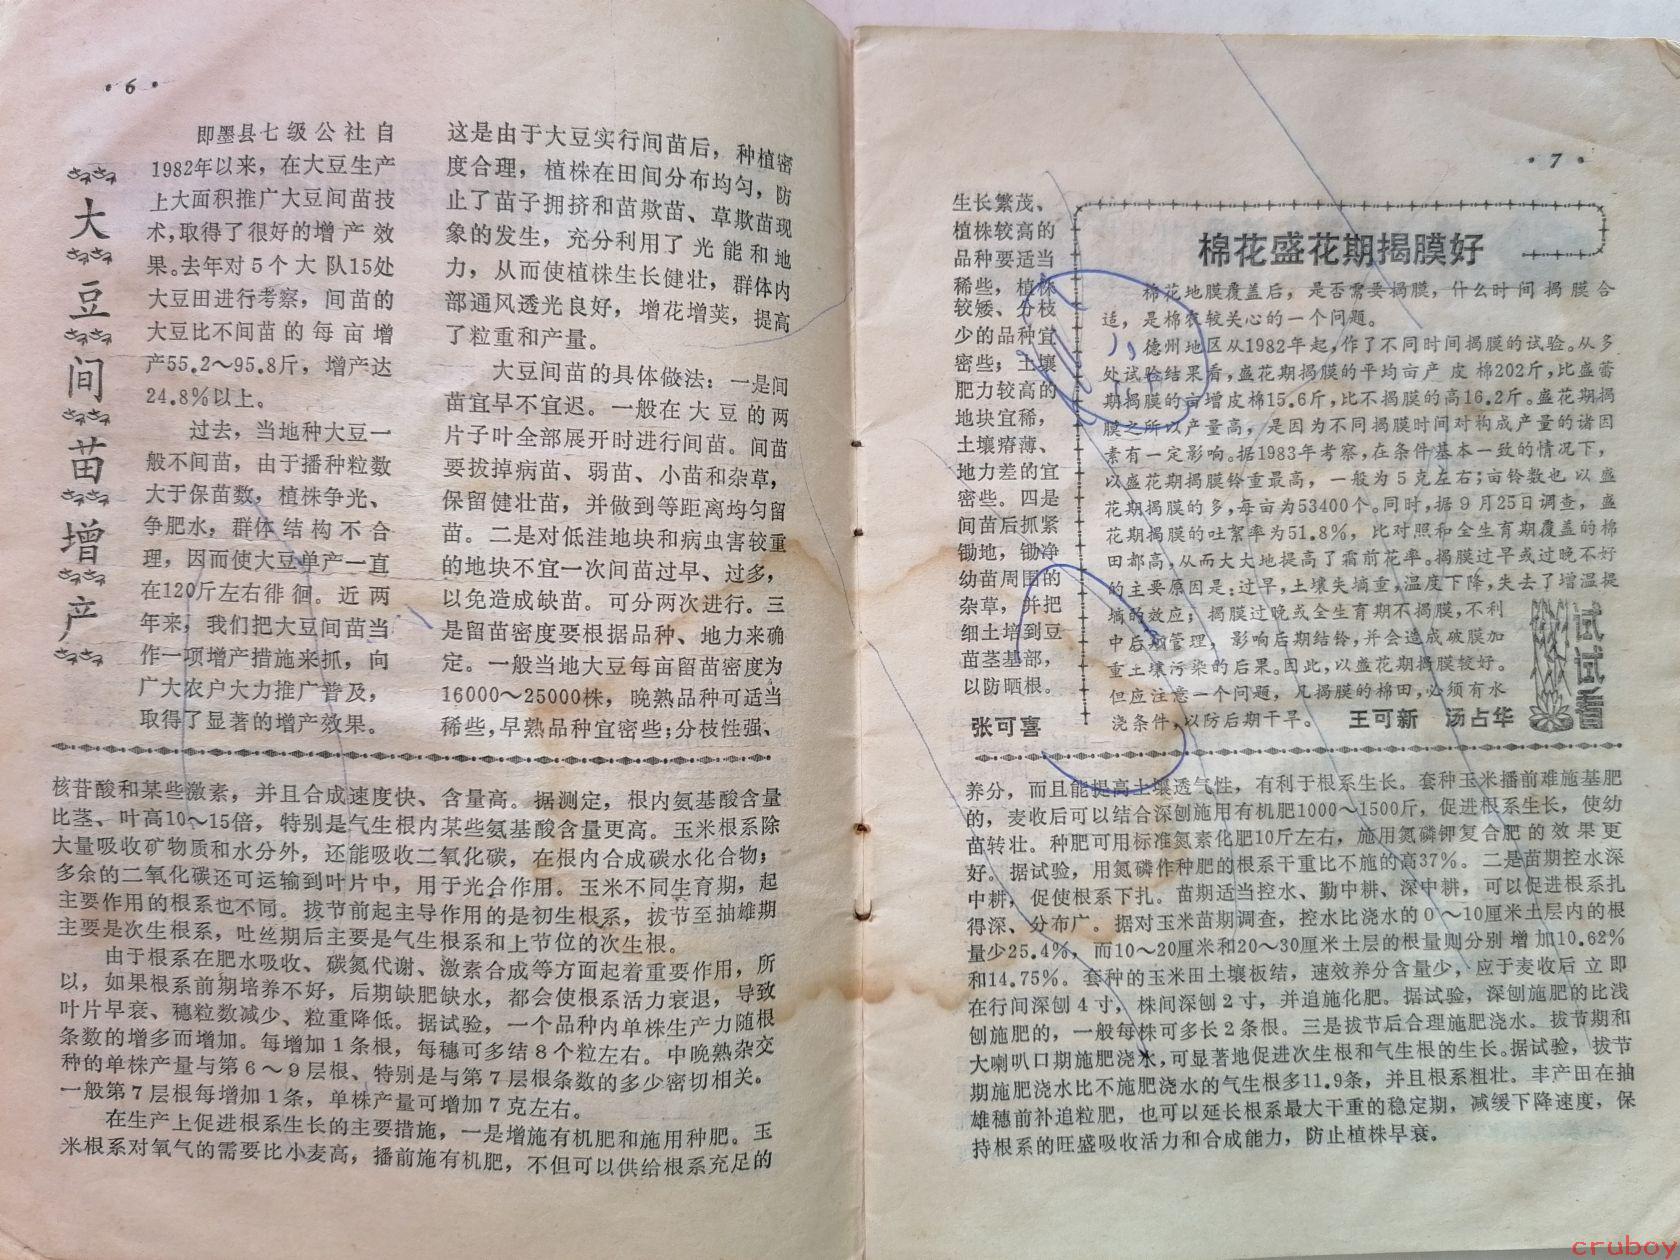 · 6 ·
大豆间苗增产
即墨县七级公社自
1982年以来，在大豆生产
上大面积推广大豆间苗技
术，取得了很好的增产效
果。去年对5个大队15处
大豆田进行考察，间苗的
大豆比不间苗的每亩增
产55.2～95.8斤，增产达
24.8%以上。
过去，当地种大豆一
般不间苗，由于播种粒数
大于保苗数，植株争光、
争肥水，群体结构不合
理，因而使大豆单产一直
在120斤左右徘徊。近两
年来，我们把大豆间苗当
作一项增产措施来抓，向
广大农户大力推广普及，
取得了显著的增产效果。
这是由于大豆实行间苗后，种植密
度合理，植株在田间分布均匀，防
止了苗子拥挤和苗欺苗、草欺苗现
象的发生，充分利用了光能和地
力，从而使植株生长健壮，群体内
部通风透光良好，增花增荚，提高
了粒重和产量。
大豆间苗的具体做法：一是间
苗宜早不宜迟。一般在大豆的两
片子叶全部展开时进行间苗。间苗
要拔掉病苗、弱苗、小苗和杂草，
保留健壮苗，并做到等距离均匀留
苗。二是对低洼地块和病虫害较重
的地块不宜一次间苗过早、过多，
以免造成缺苗。可分两次进行。三
是留苗密度要根据品种、地力来确
定。一般当地大豆每亩留苗密度为
16000～25000株，晚熟品种可适当
稀些，早熟品种宜密些；分枝性强、
核苷酸和某些激素，并且合成速度快、含量高。据测定，根内氨基酸含量
比茎、叶高10～15倍，特别是气生根内某些氨基酸含量更高。玉米根系除
大量吸收矿物质和水分外，还能吸收二氧化碳，在根内合成碳水化合物；
多余的二氧化碳还可运输到叶片中，用于光合作用。玉米不同生育期，起
主要作用的根系也不同。拔节前起主导作用的是初生根系，拔节至抽雄期
主要是次生根系，吐丝期后主要是气生根系和上节位的次生根。
由于根系在肥水吸收、碳氮代谢、激素合成等方面起着重要作用，所
以，如果根系前期培养不好，后期缺肥缺水，都会使根系活力衰退，导致
叶片早衰、穗粒数减少、粒重降低。据试验，一个品种内单株生产力随根
条数的增多而增加。每增加1条根，每穗可多结8个粒左右。中晚熟杂交
种的单株产量与第6～9层根、特别是与第7层根条数的多少密切相关。
一般第7层根每增加1条，单株产量可增加7克左右。
在生产上促进根系生长的主要措施，一是增施有机肥和施用种肥。玉
米根系对氧气的需要比小麦高，播前施有机肥，不但可以供给根系充足的
· 7 ·
生长繁茂、
植株较高的
品种要适当
稀些，植株
较矮、分枝
少的品种宜
密些；土壤
肥力较高的
地块宜稀，
土壤瘠薄、
地力差的宜
密些。四是
间苗后抓紧
锄地，锄净
幼苗周围的
杂草，并把
细土培到豆
苗茎基部，
以防晒根。
张可喜
棉花盛花期揭膜好
棉花地膜覆盖后，是否需要揭膜，什么时间揭膜合
适，是棉农较关心的一个问题。
德州地区从1982年起，作了不同时间揭膜的试验。从多
处试验结果看，盛花期揭膜的平均亩产皮棉202斤，比盛蕾
期揭膜的亩增皮棉15.6斤，比不揭膜的高16.2斤。盛花期揭
膜之所以产量高，是因为不同揭膜时间对构成产量的诸因
素有一定影响。据1983年考察，在条件基本一致的情况下，
以盛花期揭膜铃重最高，一般为5克左右；亩铃数也以盛
花期揭膜的多，每亩为53400个。同时，据9月25日调查，盛
花期揭膜的吐絮率为51.8%，比对照和全生育期覆盖的棉
田都高，从而大大地提高了霜前花率。揭膜过早或过晚不好
的主要原因是：过早，土壤失墒重，温度下降，失去了增温提
墒的效应；揭膜过晚或全生育期不揭膜，不利
中后期管理，影响后期结铃，并会造成破膜加
重土壤污染的后果。因此，以盛花期揭膜较好。
但应注意一个问题，凡揭膜的棉田，必须有水
浇条件，以防后期干旱。 王可新 汤占华
试试看
养分，而且能提高土壤透气性，有利于根系生长。套种玉米播前难施基肥
的，麦收后可以结合深刨施用有机肥1000～1500斤，促进根系生长，使幼
苗转壮。种肥可用标准氮素化肥10斤左右，施用氮磷钾复合肥的效果更
好。据试验，用氮磷作种肥的根系干重比不施的高37%。二是苗期控水深
中耕，促使根系下扎。苗期适当控水、勤中耕、深中耕，可以促进根系扎
得深、分布广。据对玉米苗期调查，控水比浇水的0～10厘米土层内的根
量少25.4%，而10～20厘米和20～30厘米土层的根量则分别增加10.62%
和14.75%。套种的玉米田土壤板结，速效养分含量少，应于麦收后立即
在行间深刨4寸，株间深刨2寸，并追施化肥。据试验，深刨施肥的比浅
刨施肥的，一般每株可多长2条根。三是拔节后合理施肥浇水。拔节期和
大喇叭口期施肥浇水，可显著地促进次生根和气生根的生长。据试验，拔节
期施肥浇水比不施肥浇水的气生根多11.9条，并且根系粗壮。丰产田在抽
雄穗前补追粒肥，也可以延长根系最大干重的稳定期，减缓下降速度，保
持根系的旺盛吸收活力和合成能力，防止植株早衰。
cruboy